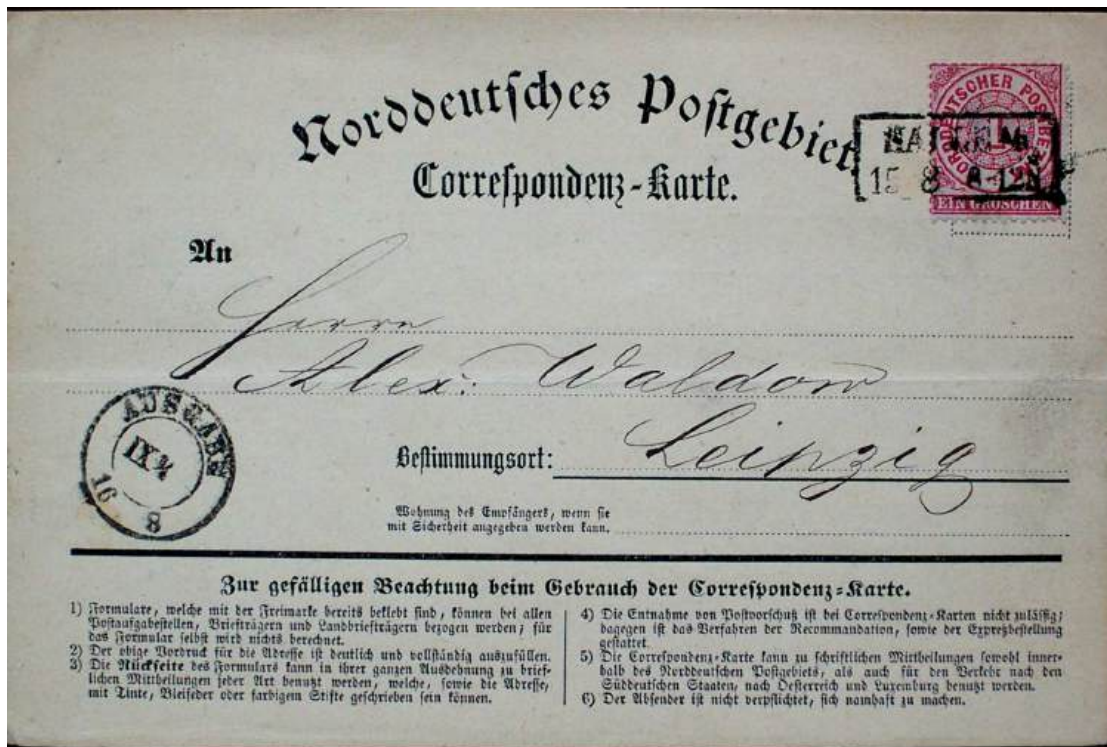 Norddeutsches Postgebiet
Correspondenz-Karte.
NORDDEUTSCHER POSTBEZIRK
1
EIN GROSCHEN
15 8
An
Herrn
Alex: Waldow
Bestimmungsort: Leipzig
Wohnung des Empfängers, wenn sie
mit Sicherheit angegeben werden kann.
AUSGABE
16
8
Zur gefälligen Beachtung beim Gebrauch der Correspondenz-Karte.
1) Formulare, welche mit der Freimarke bereits beklebt sind, können bei allen
Postaufgabestellen, Briefträgern und Landbriefträgern bezogen werden; für
das Formular selbst wird nichts berechnet.
2) Der obige Vordruck für die Adresse ist deutlich und vollständig auszufüllen.
3) Die Rückseite des Formulars kann in ihrer ganzen Ausdehnung zu brief-
lichen Mittheilungen jeder Art benutzt werden, welche, sowie die Adresse,
mit Tinte, Bleifeder oder farbigem Stifte geschrieben sein können.
4) Die Entnahme von Postvorschuß ist bei Correspondenz-Karten nicht zulässig;
dagegen ist das Verfahren der Recommandation, sowie der Expreßbestellung
gestattet.
5) Die Correspondenz-Karte kann zu schriftlichen Mittheilungen sowohl inner-
halb des Norddeutschen Postgebiets, als auch für den Verkehr nach den
Süddeutschen Staaten, nach Oesterreich und Luxemburg benutzt werden.
6) Der Absender ist nicht verpflichtet, sich namhaft zu machen.